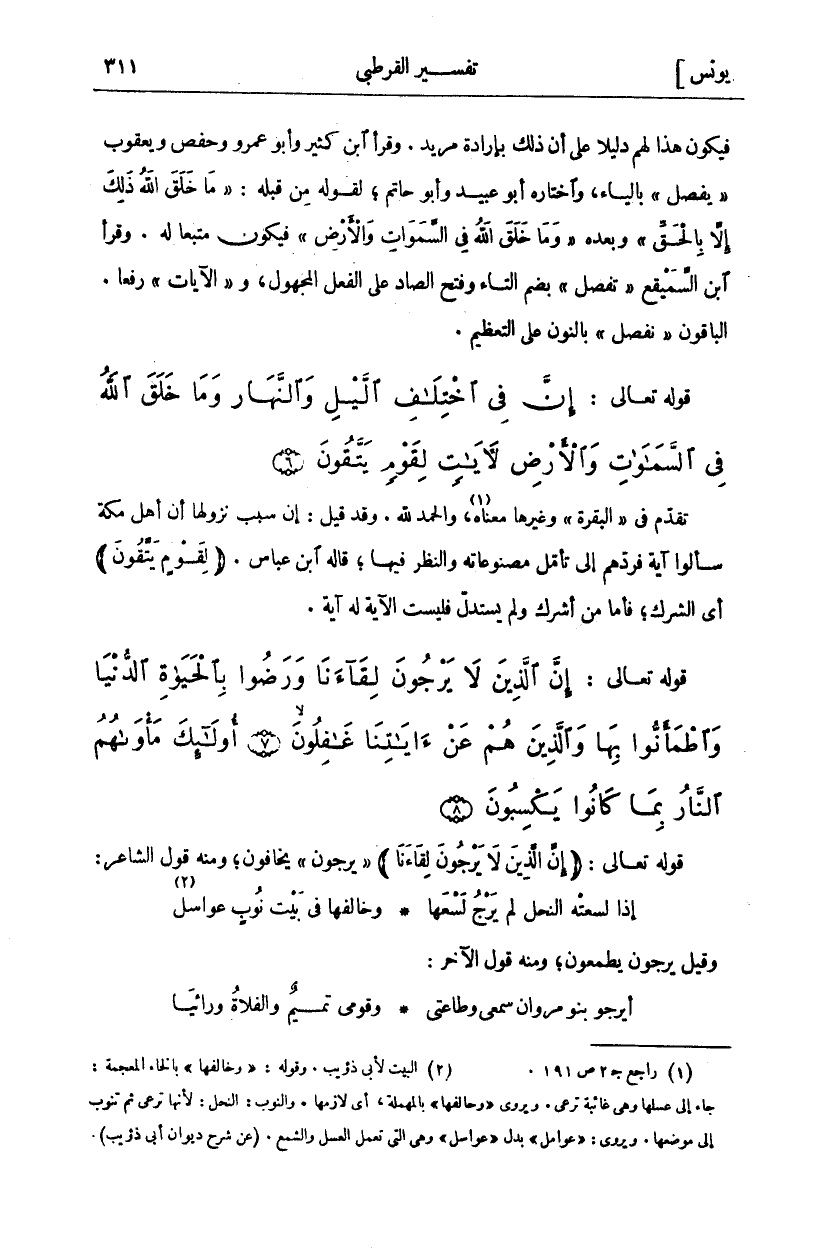 يونس ] تفســـير القرطبى ٣١١
فيكون هذا لهم دليلا على أن ذلك بإرادة مريد . وقرأ ٱبن كثير وأبو عمرو وحفص ويعقوب
« يفصل » بالياء، وٱختاره أبو عبيد وأبو حاتم ؛ لقوله مِن قبله : « مَا خَلَقَ اللهُ ذَلِكَ
إِلَّا بِالْحَقِّ » وبعده « وَمَا خَلَقَ اللهُ فِى السَّمَوَاتِ وَالْأَرْضِ » فيكون متبعا له . وقرأ
ٱبن السَّمَيْقع « تفصل » بضم التاء وفتح الصاد على الفعل المجهول، و « الآيات » رفعا .
الباقون « نفصل » بالنون على التعظيم .
قوله تعالى : إِنَّ فِى ٱخْتِلَٰفِ ٱلَّيْلِ وَٱلنَّهَارِ وَمَا خَلَقَ ٱللَّهُ
فِى ٱلسَّمَٰوَٰتِ وَٱلْأَرْضِ لَآيَٰتٍ لِقَوْمٍ يَتَّقُونَ ۝٦
تقدّم فى « البقرة » وغيرها معناه(١)، والحمد لله . وقد قيل : إن سبب نزولها أن أهل مكة
سألوا آية فردّهم إلى تأمّل مصنوعاته والنظر فيها ؛ قاله ٱبن عباس . ﴿ لِقَوْمٍ يَتَّقُونَ ﴾
أى الشرك؛ فأما من أشرك ولم يستدلّ فليست الآية له آية .
قوله تعالى : إِنَّ ٱلَّذِينَ لَا يَرْجُونَ لِقَآءَنَا وَرَضُوا بِٱلْحَيَوٰةِ ٱلدُّنْيَا
وَٱطْمَأَنُّوا بِهَا وَٱلَّذِينَ هُمْ عَنْ ءَايَٰتِنَا غَٰفِلُونَۙ ۝٧ أُولَٰٓئِكَ مَأْوَىٰهُمُ
ٱلنَّارُ بِمَا كَانُوا يَكْسِبُونَ ۝٨
قوله تعالى : ﴿ إِنَّ الَّذِينَ لَا يَرْجُونَ لِقَاءَنَا ﴾ « يرجون » يخافون؛ ومنه قول الشاعر :
إذا لسعتْه النحل لم يَرْجُ لَسْعَها * وخالفها فى بَيْت نُوبٍ عواسل(٢)
وقيل يرجون يطمعون؛ ومنه قول الآخر :
أيرجو بنو مروان سمعى وطاعتى * وقومى تميـمٌ والفلاةُ ورائيَا
(١) راجع جـ ٢ ص ١٩١ . (٢) البيت لأبى ذؤيب . وقوله : « وخالفها » بالخاء المعجمة :
جاء إلى عسلها وهى غائبة ترعى . ويروى «وحالفها» بالمهملة، أى لازمها . والنوب : النحل : لأنها ترعى ثم تنوب
إلى موضعها . ويروى : «عوامل» بدل «عواسل» وهى التى تعمل العسل والشمع . (عن شرح ديوان أبى ذؤيب).